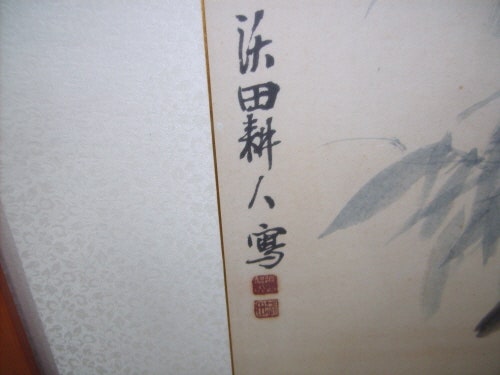 沃田耕人寫